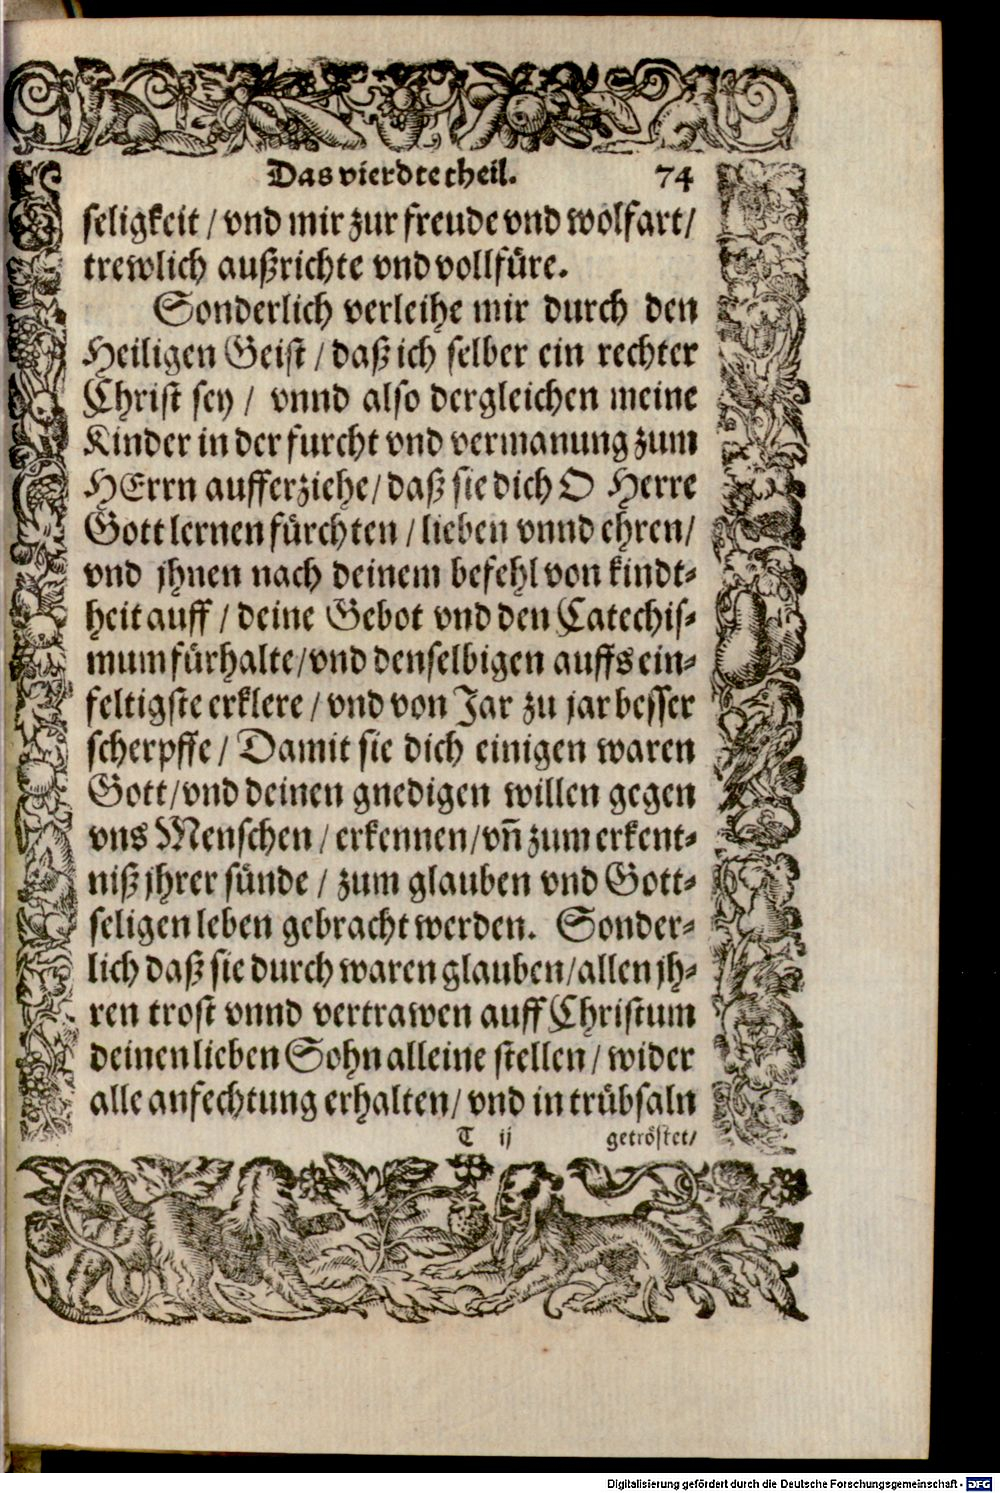 Das vierdte theil. 74
seligkeit / vnd mir zur freude vnd wolfart/
trewlich außrichte vnd vollfüre.
Sonderlich verleihe mir durch den
Heiligen Geist / daß ich selber ein rechter
Christ sey / vnnd also dergleichen meine
Kinder in der furcht vnd vermanung zum
HErrn aufferziehe/ daß sie dich O Herre
Gott lernen fürchten / lieben vnnd ehren/
vnd jhnen nach deinem befehl von kindt-
heit auff / deine Gebot vnd den Catechis-
mum fürhalte/vnd denselbigen auffs ein-
feltigste erklere / vnd von Jar zu jar besser
scherpffe / Damit sie dich einigen waren
Gott/vnd deinen gnedigen willen gegen
vns Menschen / erkennen/vñ zum erkent-
niß jhrer sünde / zum glauben vnd Gott-
seligen leben gebracht werden. Sonder-
lich daß sie durch waren glauben/allen jh-
ren trost vnnd vertrawen auff Christum
deinen lieben Sohn alleine stellen / wider
alle anfechtung erhalten/ vnd in trübsaln
T ij getröstet/
Digitalisierung gefördert durch die Deutsche Forschungsgemeinschaft - DFG